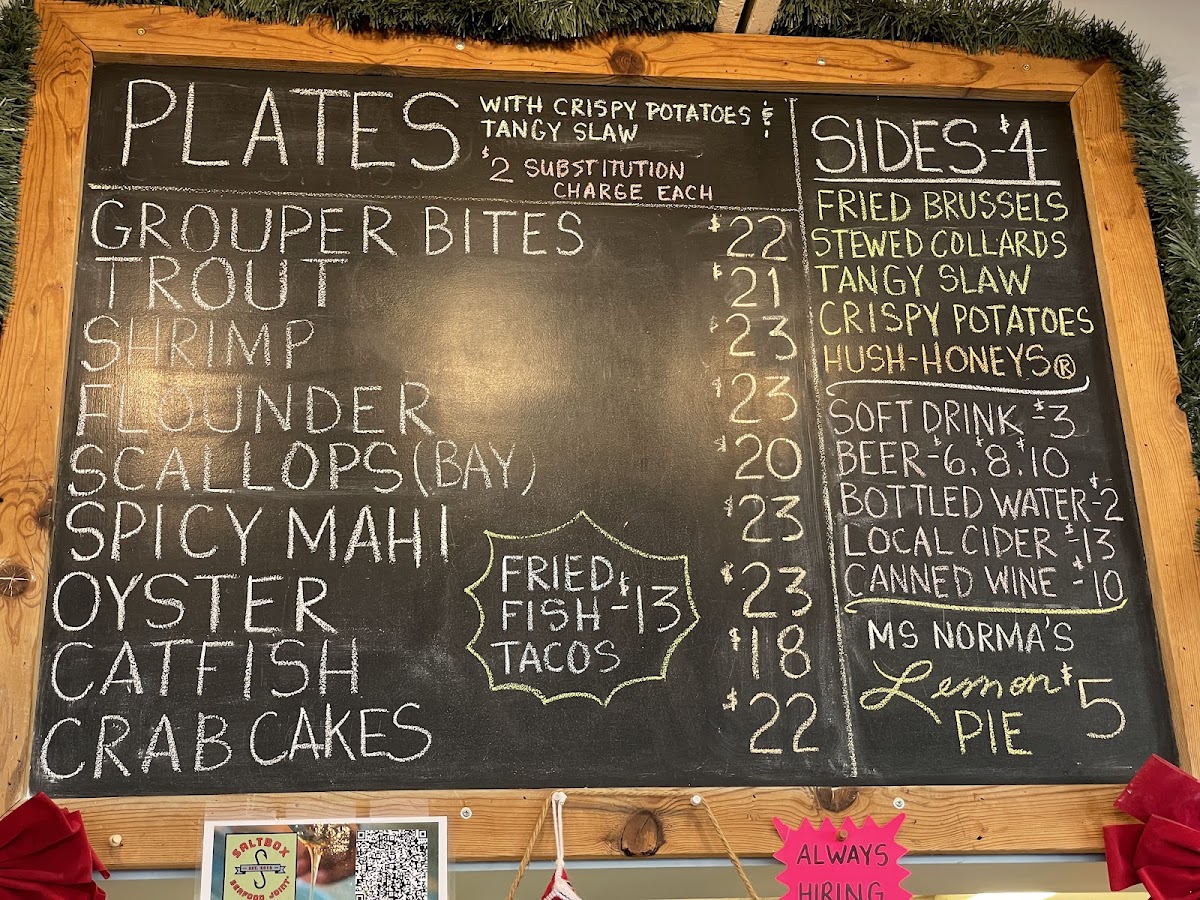 PLATES
WITH CRISPY POTATOES &
TANGY SLAW
$2 SUBSTITUTION
CHARGE EACH
GROUPER BITES $22
TROUT $21
SHRIMP $23
FLOUNDER $23
SCALLOPS (BAY) $20
SPICY MAHI $23
OYSTER $23
CATFISH $18
CRAB CAKES $22
FRIED
FISH -$13
TACOS
SIDES -$4
FRIED BRUSSELS
STEWED COLLARDS
TANGY SLAW
CRISPY POTATOES
HUSH-HONEYS®
SOFT DRINK -$3
BEER -$6, $8, $10
BOTTLED WATER -$2
LOCAL CIDER -$13
CANNED WINE -$10
MS NORMA'S
Lemon $5
PIE
SALTBOX
SEAFOOD JOINT
ALWAYS
HIRING